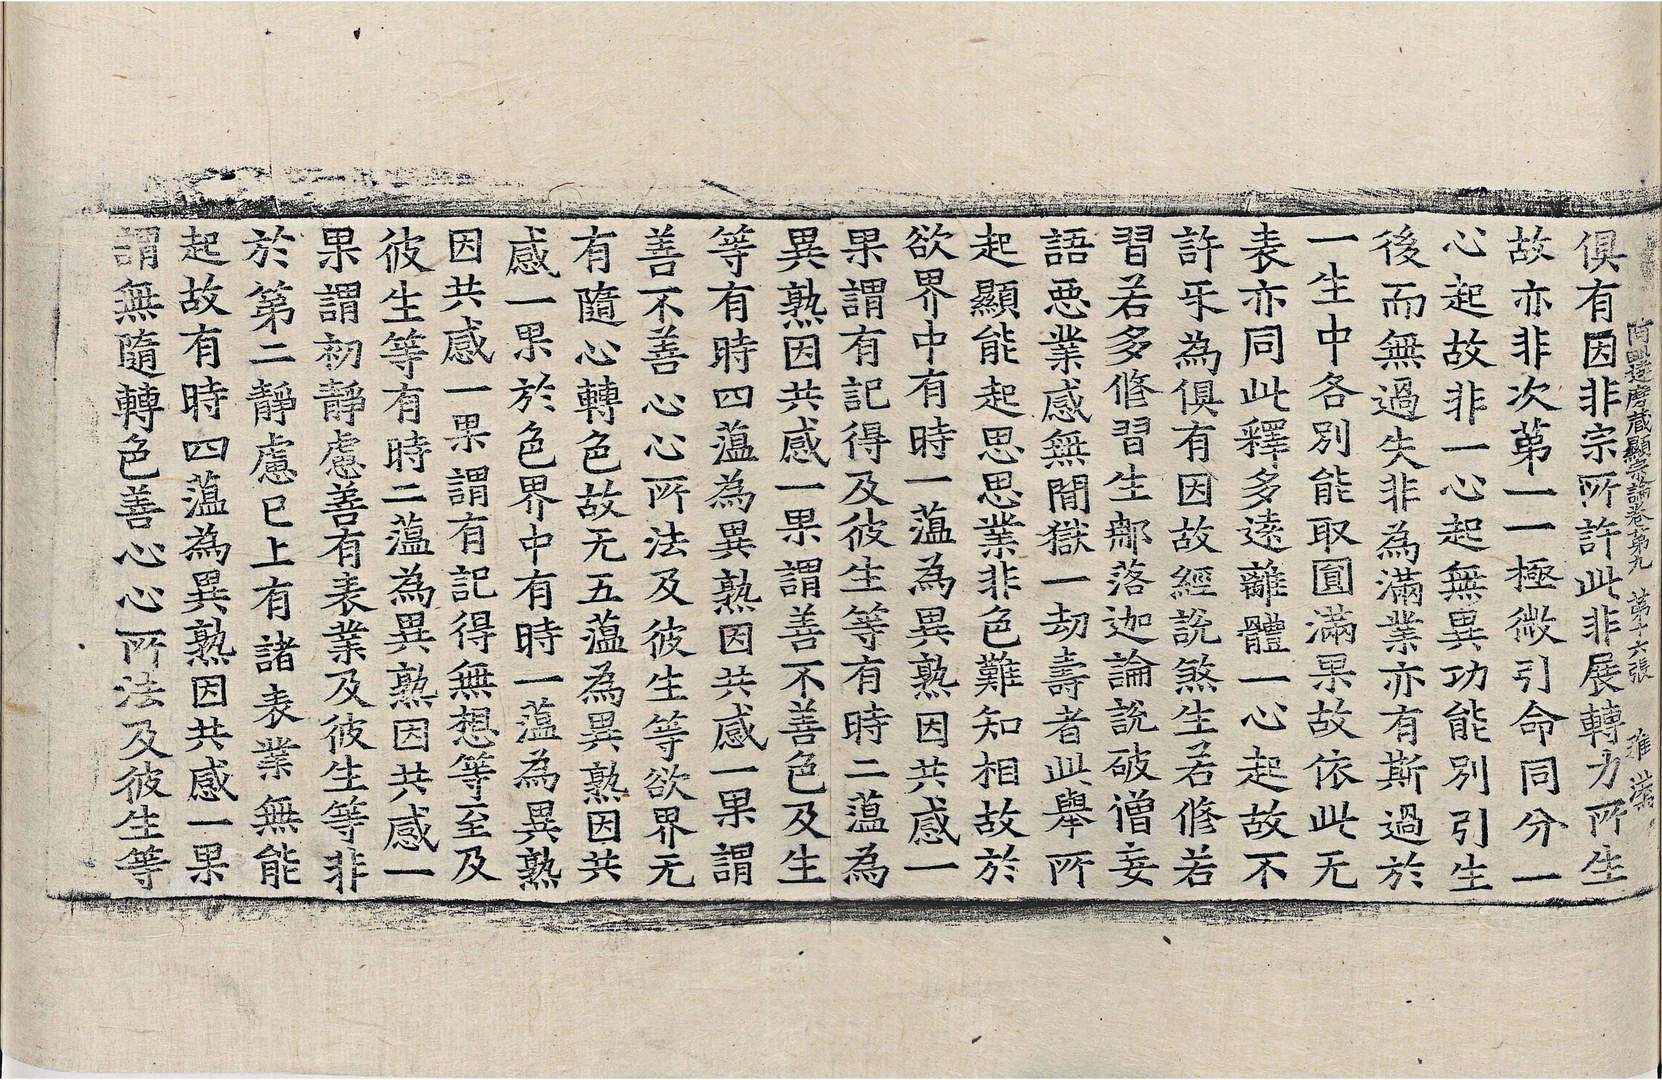 阿毗達磨藏顯宗論卷第九 第十六張 雅
俱有因非宗所許此非展轉力所生
故亦非次第一一極微引命同分一
心起故非一心起無異功能別引生
後而無過失非為滿業亦有斯過於
一生中各別能取圓滿果故依此无
表亦同此釋多遠離體一心起故不
許互為俱有因故經說煞生若修若
習若多修習生那落迦論說破僧妄
語惡業感無間獄一劫壽者此舉所
起顯能起思思業非色難知相故於
欲界中有時一薀為異熟因共感一
果謂有記得及彼生等有時二薀為
異熟因共感一果謂善不善色及生
等有時四薀為異熟因共感一果謂
善不善心心所法及彼生等欲界无
有隨心轉色故无五薀為異熟因共
感一果於色界中有時一薀為異熟
因共感一果謂有記得無想等至及
彼生等有時二薀為異熟因共感一
果謂初靜慮善有表業及彼生等非
於第二靜慮已上有諸表業無能
起故有時四薀為異熟因共感一果
謂無隨轉色善心心所法及彼生等